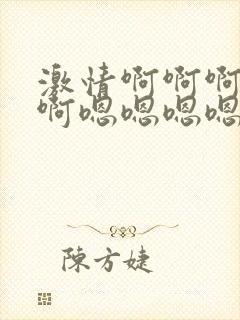 激情啊啊啊
啊嗯嗯嗯嗯
陳方婕